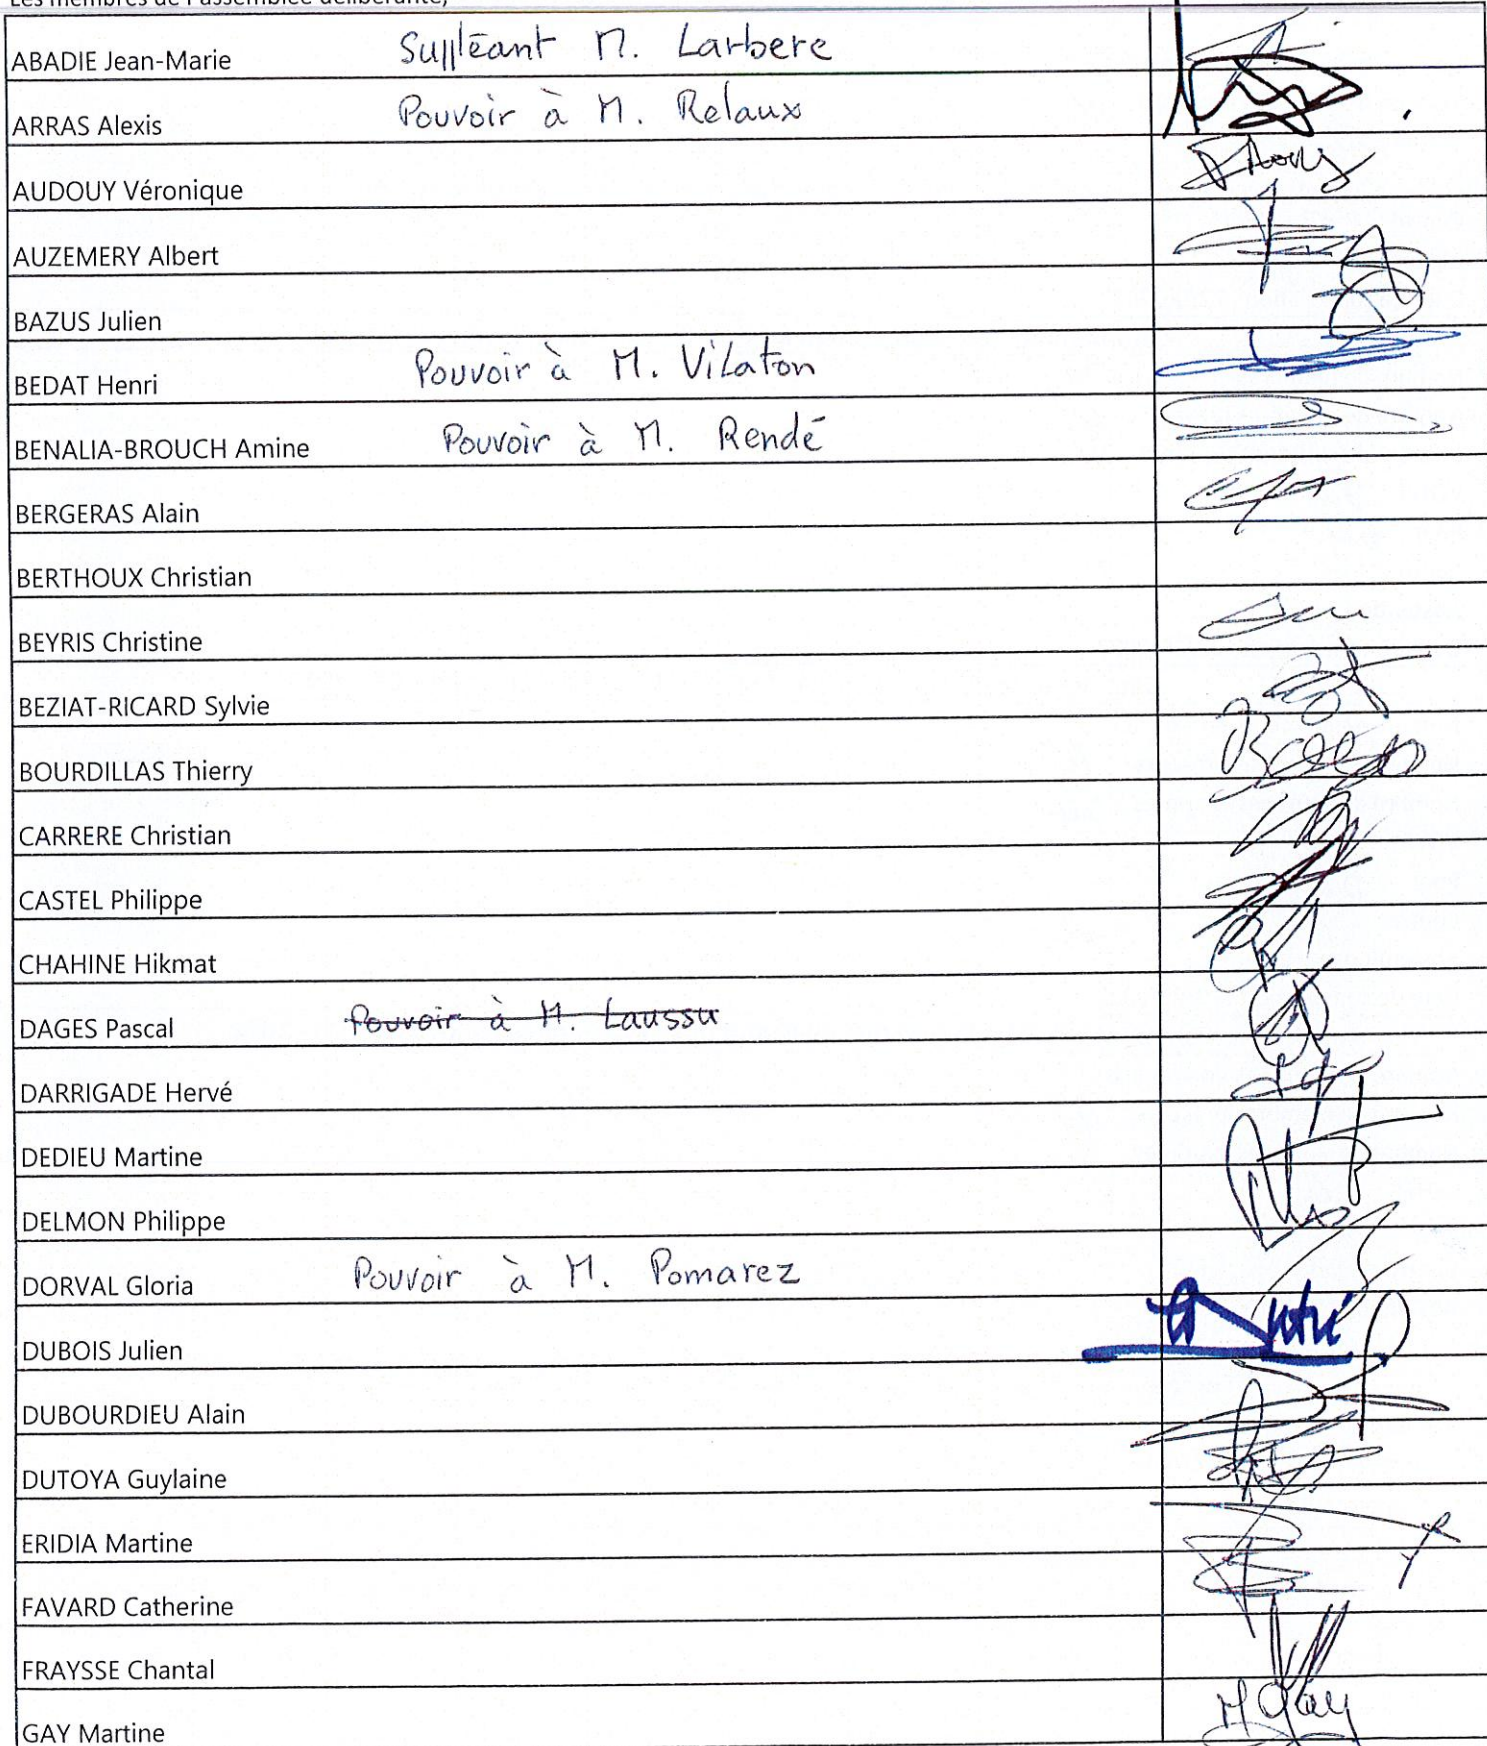 Les membres de l'assemblée délibérante,
ABADIE Jean-Marie Suppléant M. Larbere
ARRAS Alexis Pouvoir à M. Relaux
AUDOUY Véronique
AUZEMERY Albert
BAZUS Julien
BEDAT Henri Pouvoir à M. Vilaton
BENALIA-BROUCH Amine Pouvoir à M. Rendé
BERGERAS Alain
BERTHOUX Christian
BEYRIS Christine
BEZIAT-RICARD Sylvie
BOURDILLAS Thierry
CARRERE Christian
CASTEL Philippe
CHAHINE Hikmat
DAGES Pascal Pouvoir à M. Laussu
DARRIGADE Hervé
DEDIEU Martine
DELMON Philippe
DORVAL Gloria Pouvoir à M. Pomarez
DUBOIS Julien
DUBOURDIEU Alain
DUTOYA Guylaine
ERIDIA Martine
FAVARD Catherine
FRAYSSE Chantal
GAY Martine M Gay